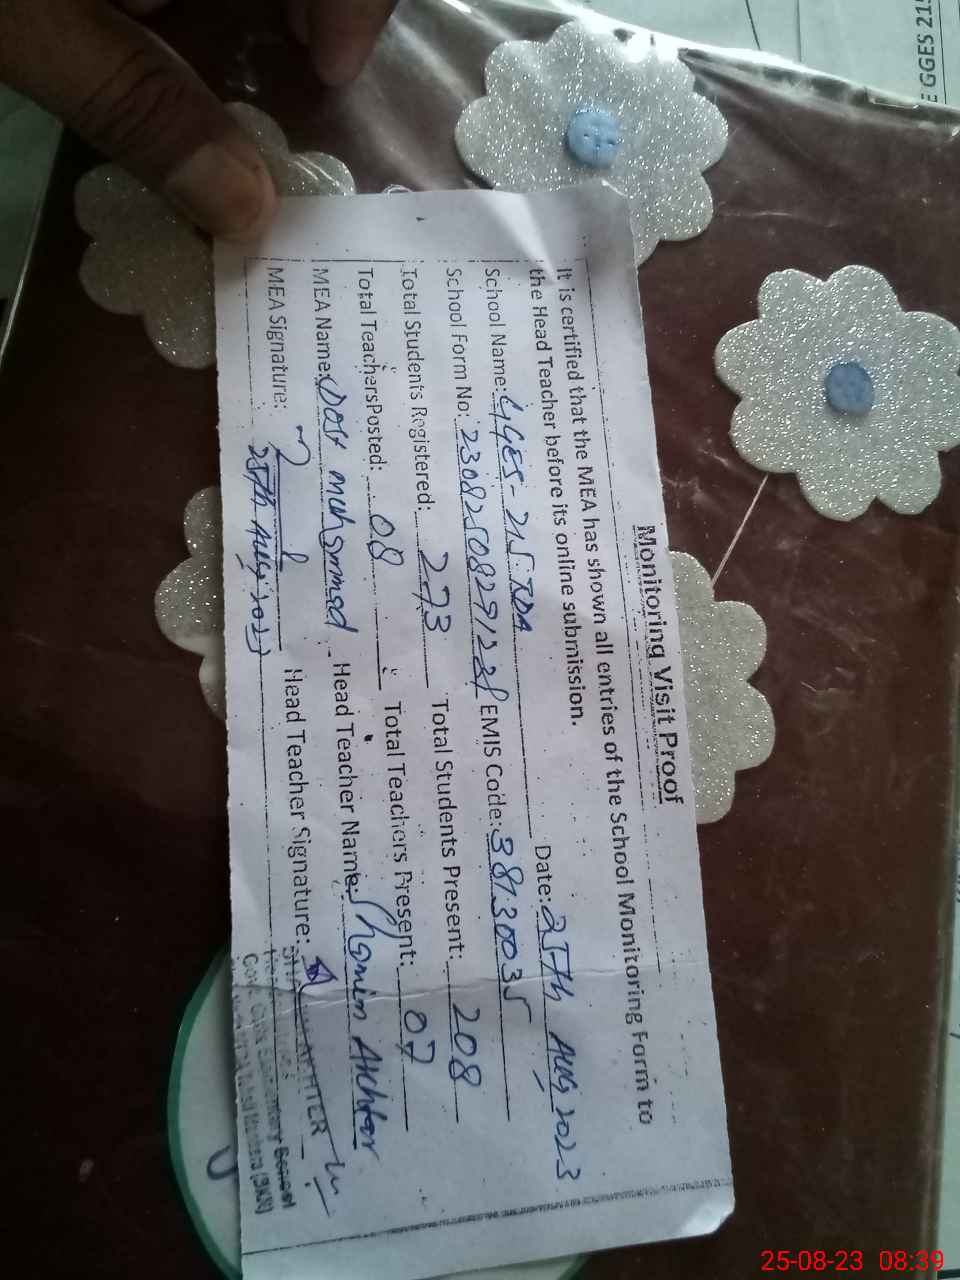 GGES 21
Monitoring Visit Proof
It is certified that the MEA has shown all entries of the School Monitoring Form to
the Head Teacher before its online submission. Date: 25th Aug, 2023
School Name: GGES-215.TDA
School Form No: EMIS Code: 38130035
Total Students Registered: 273 Total Students Present: 208
Total TeachersPosted: 08 Total Teachers Present: 07
MEA Name: Dost muhammad Head Teacher Name: Shamim Akhtar
MEA Signature: Head Teacher Signature:
25th Aug, 2023
AKHTER
Govt. Girls Elementary School
25-08-23 08:39